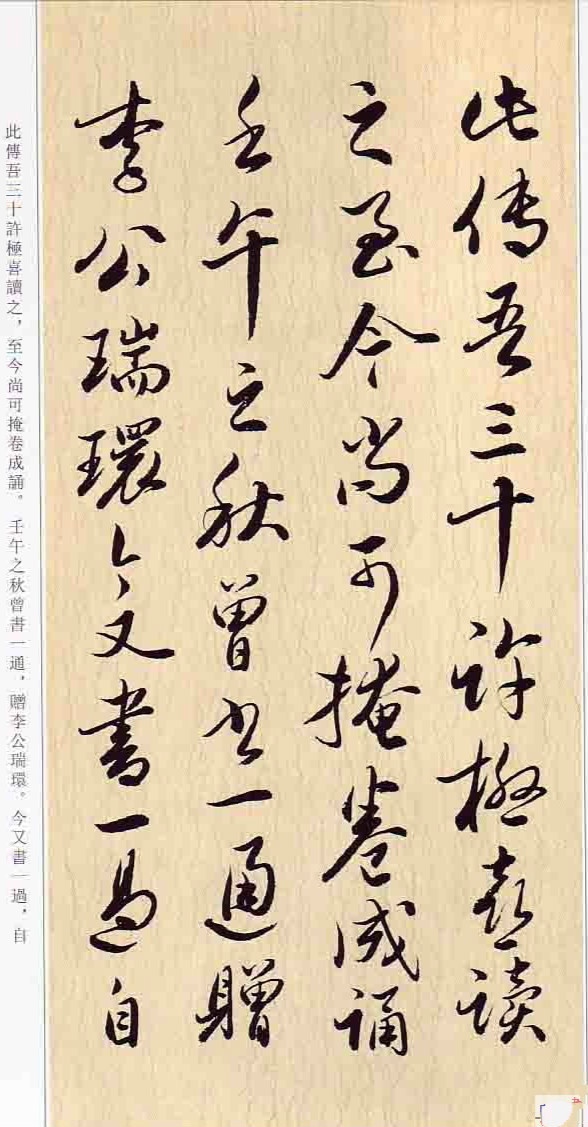 此传吾三十許極喜读
之至今尚可掩卷成诵
壬午之秋曾书一通贈
李公瑞環今又書一過自
此傳吾三十許極喜讀之，至今尚可掩卷成誦。壬午之秋曾書一通，贈李公瑞環。今又書一過，自